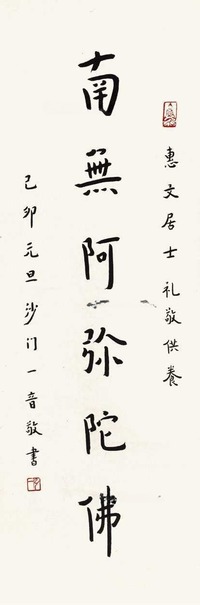 惠文居士礼敬供養
南無阿弥陀佛
己卯元旦沙门一音敬書